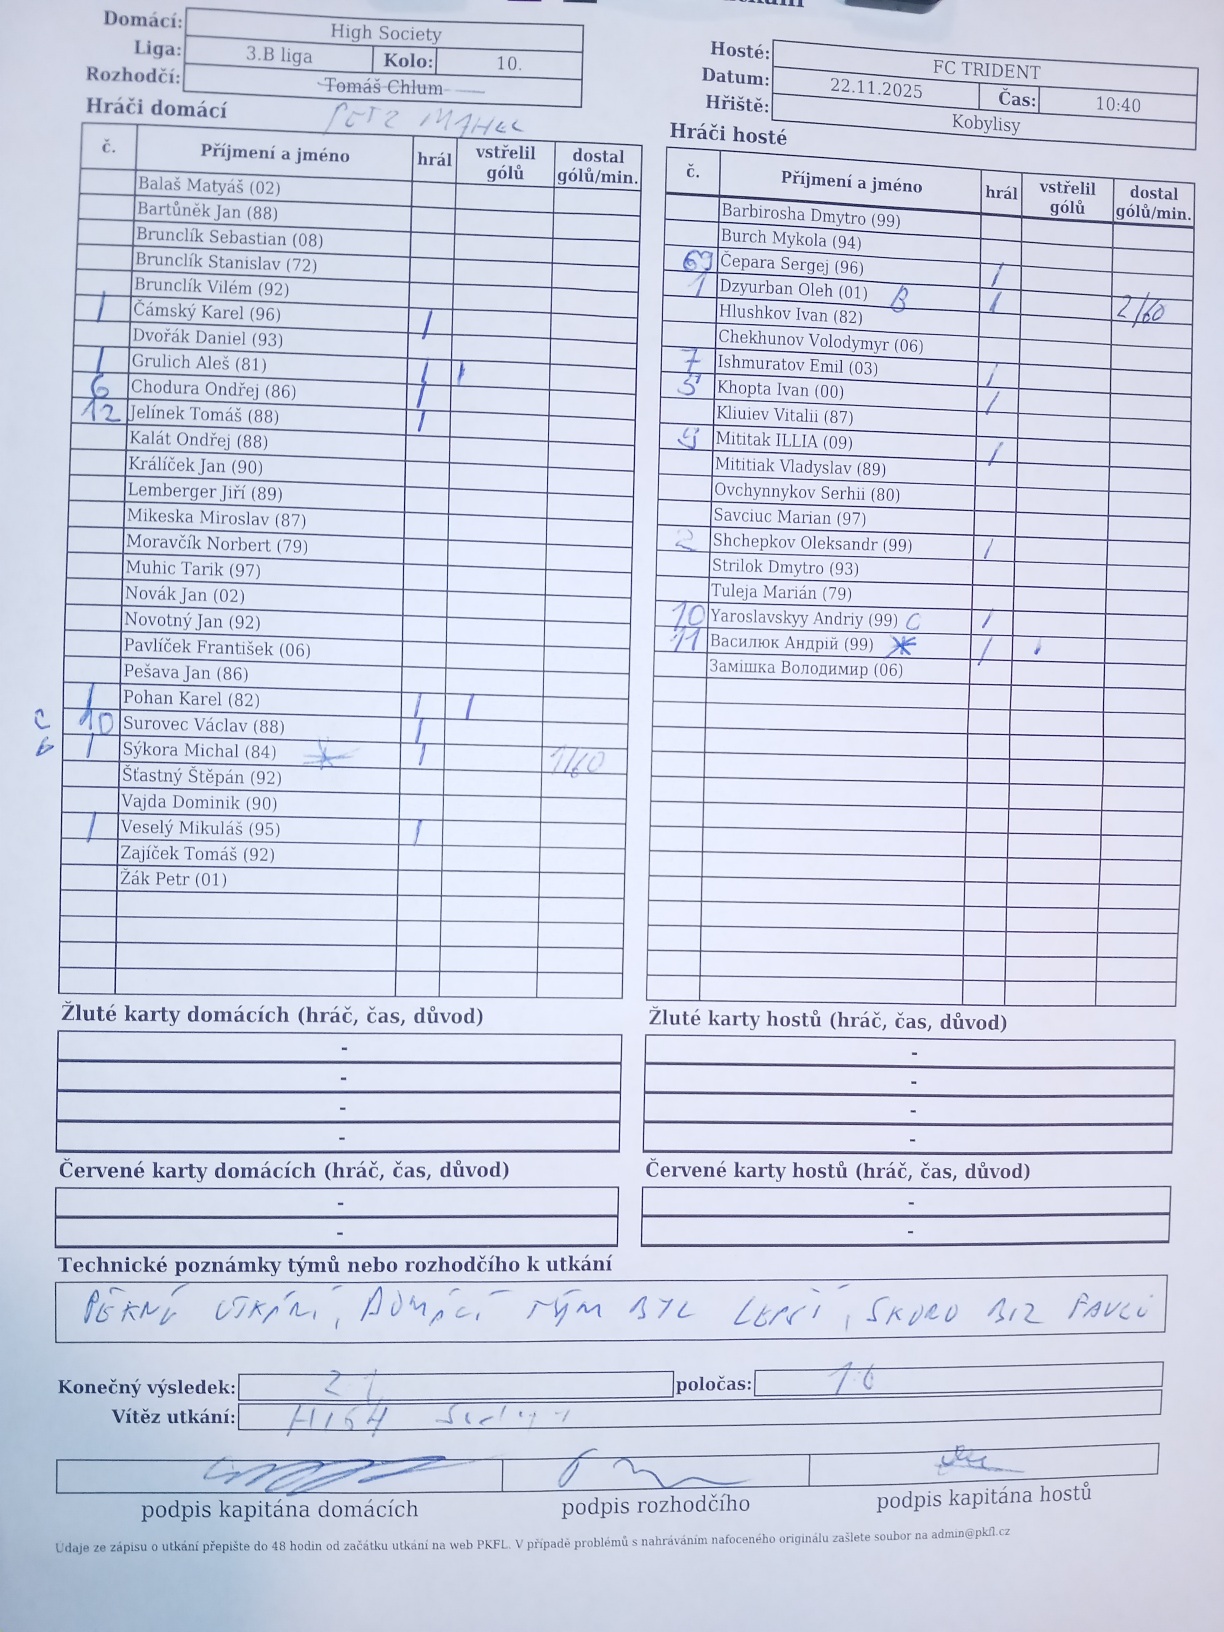 Domácí: High Society
Liga: 3.B liga Kolo: 10.
Rozhodčí: Tomáš Chlum
Hosté: FC TRIDENT
Datum: 22.11.2025 Čas: 10:40
Hřiště: Kobylisy
Hráči domácí
č. Příjmení a jméno hrál vstřelil gólů dostal gólů/min.
Balaš Matyáš (02)
Bartůněk Jan (88)
Brunclík Sebastian (08)
Brunclík Stanislav (72)
Brunclík Vilém (92)
1 Čámský Karel (96) 1
Dvořák Daniel (93)
1 Grulich Aleš (81) 1 1
6 Chodura Ondřej (86) 1
12 Jelínek Tomáš (88) 1
Kalát Ondřej (88)
Králíček Jan (90)
Lemberger Jiří (89)
Mikeska Miroslav (87)
Moravčík Norbert (79)
Muhic Tarik (97)
Novák Jan (02)
Novotný Jan (92)
Pavlíček František (06)
Pešava Jan (86)
1 Pohan Karel (82) 1 1
C 10 Surovec Václav (88) 1
b 1 Sýkora Michal (84) * 1 1/60
Šťastný Štěpán (92)
Vajda Dominik (90)
1 Veselý Mikuláš (95) 1
Zajíček Tomáš (92)
Žák Petr (01)
Hráči hosté
č. Příjmení a jméno hrál vstřelil gólů dostal gólů/min.
Barbirosha Dmytro (99)
Burch Mykola (94)
69 Čepara Sergej (96) 1
1 Dzyurban Oleh (01) B 1 2/60
Hlushkov Ivan (82)
Chekhunov Volodymyr (06)
7 Ishmuratov Emil (03) 1
5 Khopta Ivan (00) 1
Kliuiev Vitalii (87)
9 Mititak ILLIA (09) 1
Mititiak Vladyslav (89)
Ovchynnykov Serhii (80)
Savciuc Marian (97)
2 Shchepkov Oleksandr (99) 1
Strilok Dmytro (93)
Tuleja Marián (79)
10 Yaroslavskyy Andriy (99) C 1
11 Василюк Андрій (99) * 1 1
Замішка Володимир (06)
Žluté karty domácích (hráč, čas, důvod)
-
-
-
-
Žluté karty hostů (hráč, čas, důvod)
-
-
-
-
Červené karty domácích (hráč, čas, důvod)
-
-
Červené karty hostů (hráč, čas, důvod)
-
-
Technické poznámky týmů nebo rozhodčího k utkání
PĚKNÉ UTKÁNÍ, DOMÁCÍ TÝM BYL LEPŠÍ, SKORO BEZ FAULŮ
Konečný výsledek: 2:1 poločas: 1:0
Vítěz utkání: HIGH Society
podpis kapitána domácích podpis rozhodčího podpis kapitána hostů
Udaje ze zápisu o utkání přepište do 48 hodin od začátku utkání na web PKFL. V případě problémů s nahráváním nafoceného originálu zašlete soubor na admin@pkfl.cz